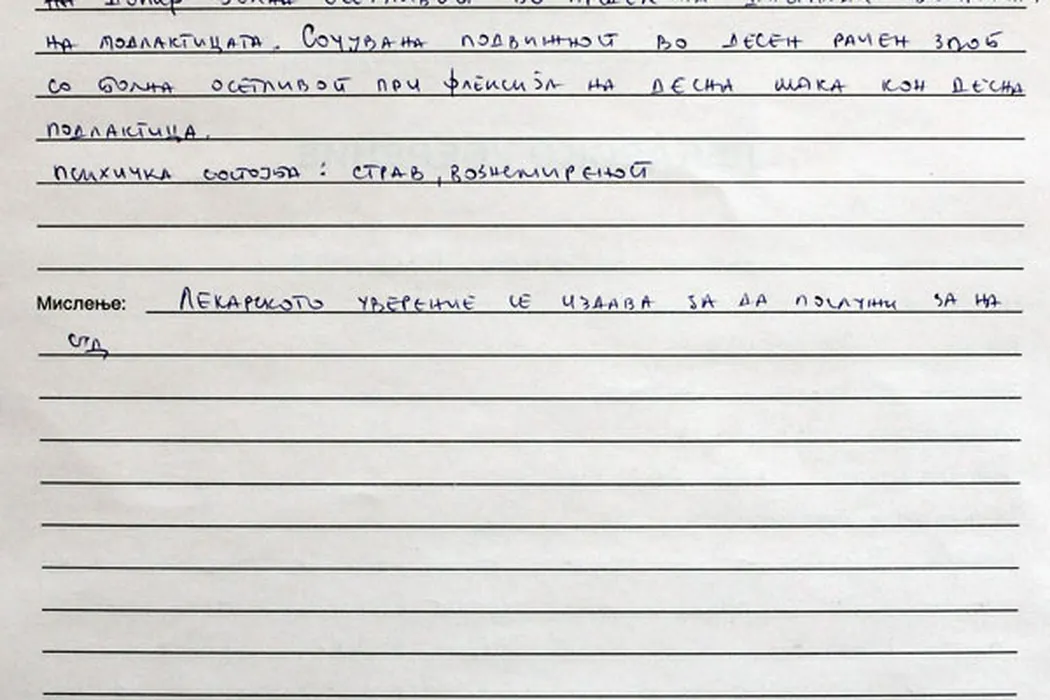 на подлактицата. Сочувана подвижност во десен рачен зглоб
со болна осетливост при флексија на десна шака кон десна
подлактица.
психичка состојба: страв, вознемиреност
Мислење: Лекарското уверение се издава за да послужи за на
суд